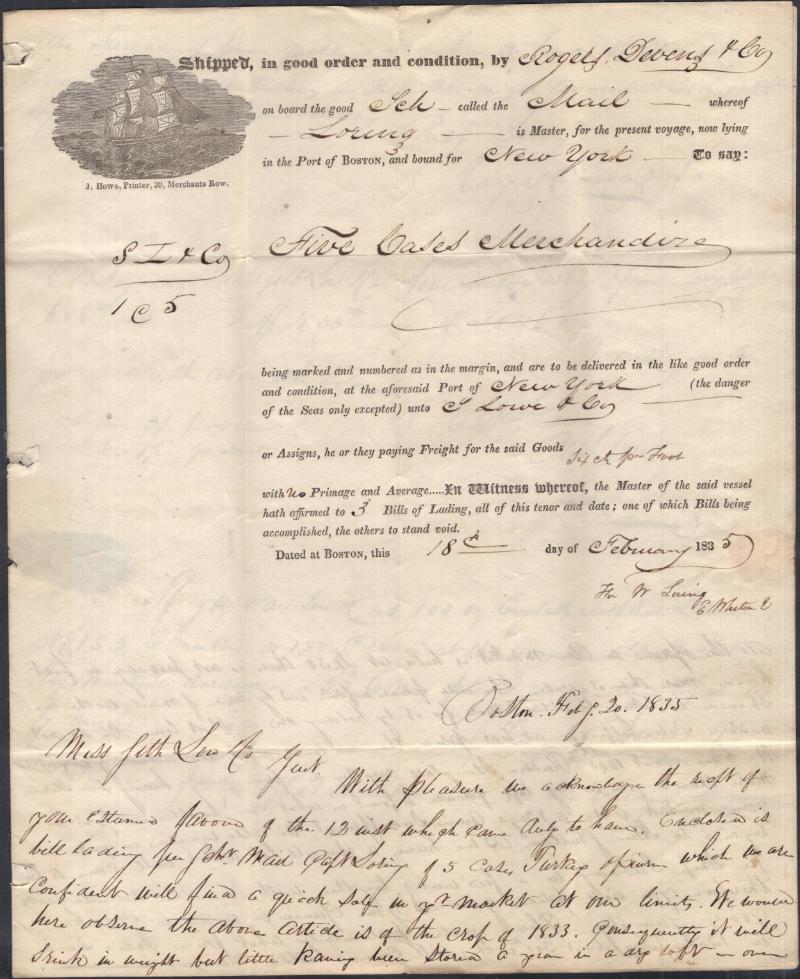 Shipped, in good order and condition, by Rogers, Devens & Co
on board the good Sch called the Mail whereof
Loring is Master, for the present voyage, now lying
in the Port of BOSTON, and bound for New York To say:
J. Howe, Printer, 39, Merchants Row.
S L & Co Five Cases Merchandize
1 @ 5
being marked and numbered as in the margin, and are to be delivered in the like good order
and condition, at the aforesaid Port of New York (the danger
of the Seas only excepted) unto S Lowe & Co
or Assigns, he or they paying Freight for the said Goods Six cts pr Foot
with no Primage and Average.....In Witness whereof, the Master of the said vessel
hath affirmed to 3 Bills of Lading, all of this tenor and date; one of which Bills being
accomplished, the others to stand void.
Dated at BOSTON, this 18th day of February 1835
For W Loring
E Whiton
Boston. Feby. 20. 1835
Mess Seth Low & Co Gent.
With pleasure we acknowlege the recpt of
your esteemed favour of the 12 inst which came duly to hand. Enclosed is
bill lading per Schr Mail Capt Loring of 5 cases Turkey opium which we are
confident will find a quick sale in yr market at our limits. We would
here observe the above article is of the crop of 1833. Consequently it will
srink in weight but little having been stored a year in a dry loft — over